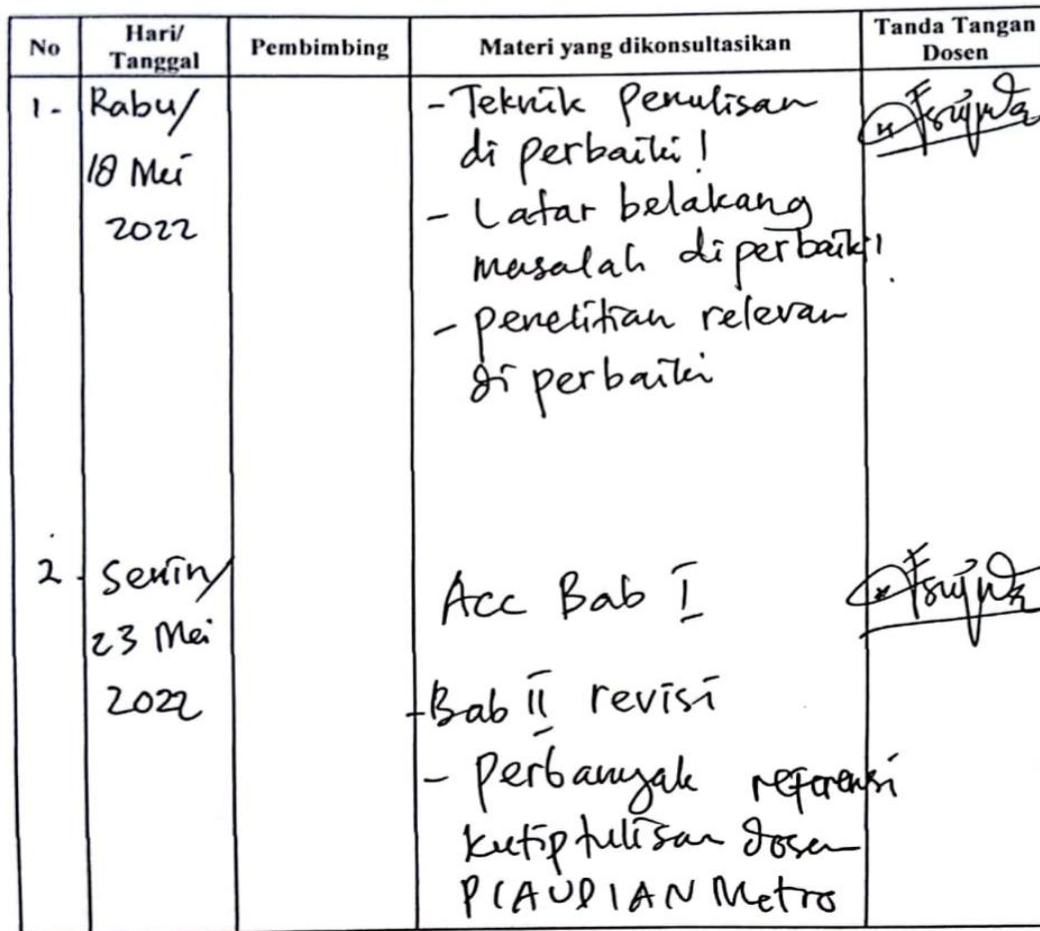 No Hari/ Tanggal Pembimbing Materi yang dikonsultasikan Tanda Tangan Dosen
1- Rabu/ - Teknik Penulisan
di perbaiki!
18 Mei - Latar belakang
2022 masalah diperbaiki!
- penelitian relevan
di perbaiki
2- Senin/ Acc Bab I
23 Mei
2022 -Bab II revisi
- perbanyak referensi
kutip tulisan dosen
PIAUD IAN Metro